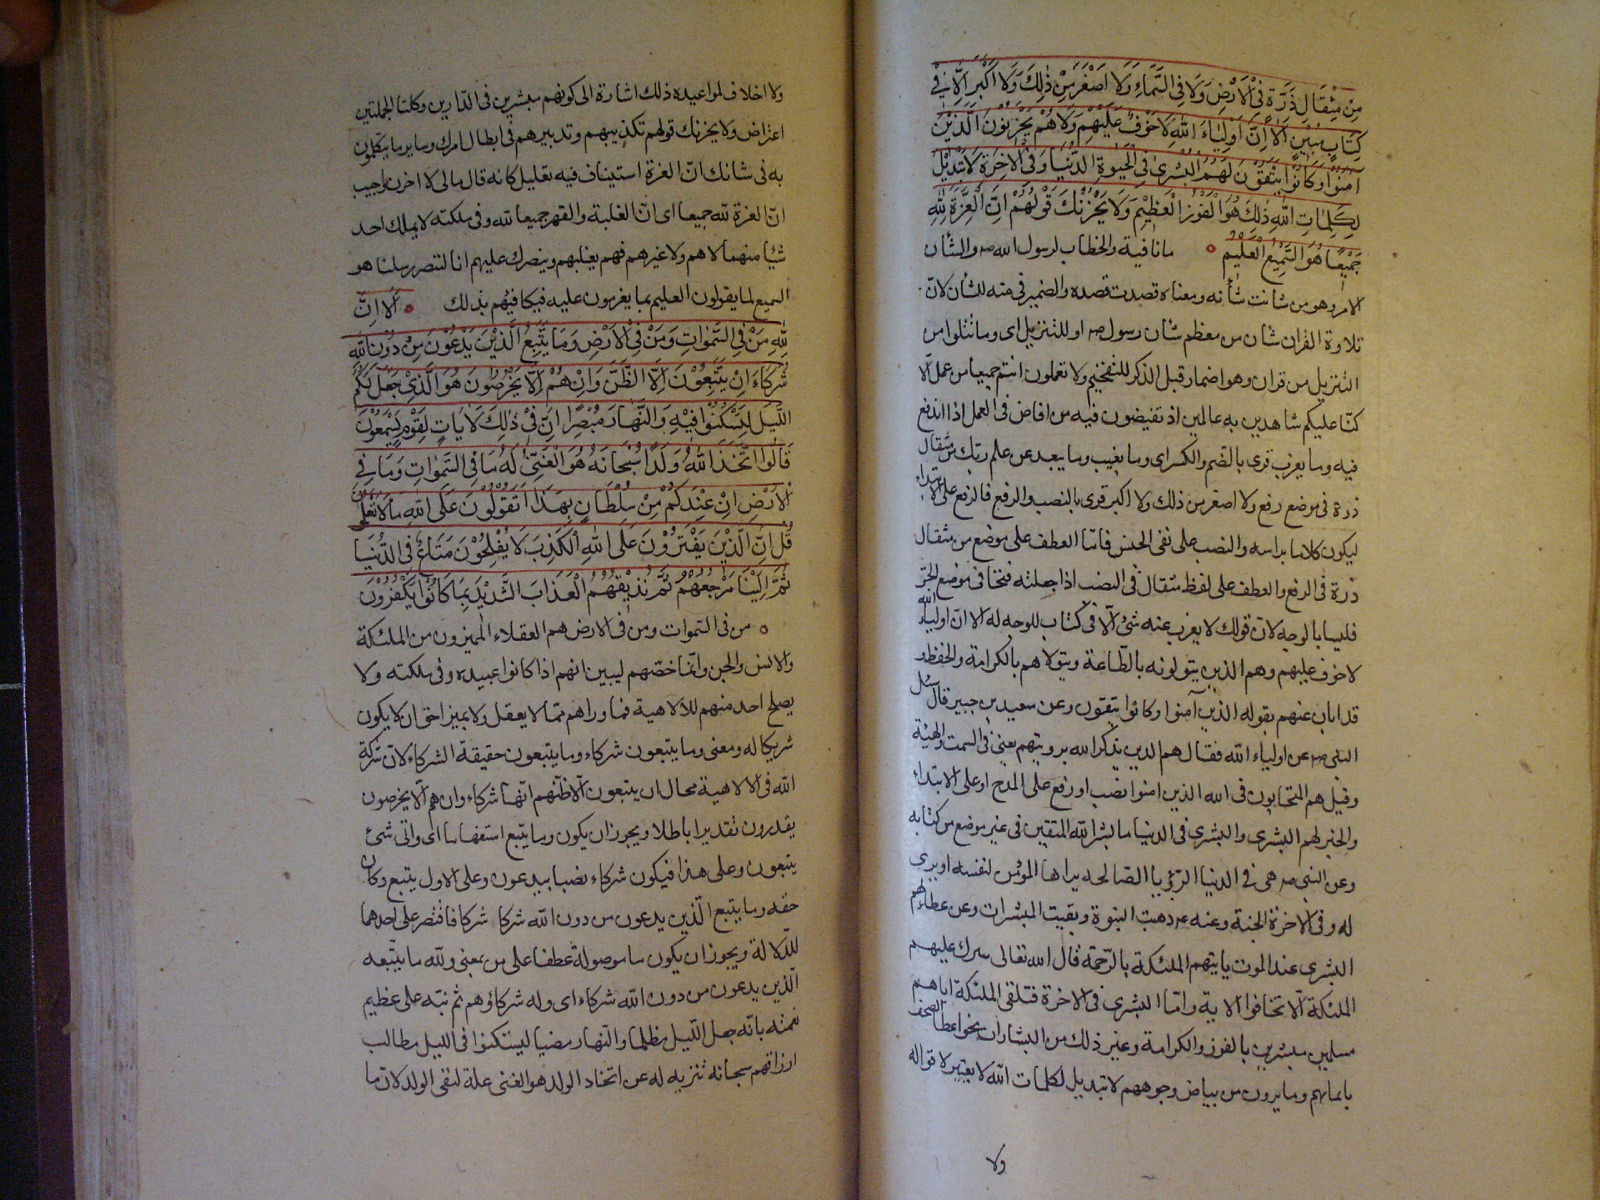 مِنْ مِثْقَالِ ذَرَّةٍ فِي الْأَرْضِ وَلَا فِي السَّمَاءِ وَلَا أَصْغَرَ مِنْ ذٰلِكَ وَلَا أَكْبَرَ إِلَّا فِي
كِتَابٍ مُبِينٍ أَلَا إِنَّ أَوْلِيَاءَ اللهِ لَا خَوْفٌ عَلَيْهِمْ وَلَا هُمْ يَحْزَنُونَ الَّذِينَ
آمَنُوا وَكَانُوا يَتَّقُونَ لَهُمُ الْبُشْرَىٰ فِي الْحَيٰوةِ الدُّنْيَا وَفِي الْآخِرَةِ لَا تَبْدِيلَ
لِكَلِمَاتِ اللهِ ذٰلِكَ هُوَ الْفَوْزُ الْعَظِيمُ وَلَا يَحْزُنْكَ قَوْلُهُمْ إِنَّ الْعِزَّةَ لِلّٰهِ
جَمِيعًا هُوَ السَّمِيعُ الْعَلِيمُ ما نافية والخطاب لرسول الله ص والشأن
الامر وهو من شانت شأنه ومعناه قصدت قصده والضمير في منه للشان لانّ
تلاوة القران شان من معظم شان رسول ص او للتنزيل اى وما تتلوا من
التنزيل من قران وهو اضمار قبل الذكر للتفخيم ولا تعملون انتم جميعا من عمل الّا
كنّا عليكم شاهدين به عالمين اذ تفيضون فيه من افاض في العمل اذا اندفع
فيه وما يعزب قرى بالضم والكسر اى وما يغيب وما يبعد عن علم ربك من مثقال
ذرة في موضع رفع ولا اصغر من ذلك ولا اكبر قرى بالنصب والرفع فالرفع على الابتداء
ليكون كلاما براسه والنصب على نفى الجنس فامّا العطف على موضع من مثقال
ذرة في الرفع والعطف على لفظ مثقال في النصب اذا جعلته فتحا في موضع الجرّ
فليسا بالوجه لانّ قولك لا يعزب عنه شئ الّا في كتاب لا وجه له الا ان اولياء الله
لا خوف عليهم وهم الذين يتولونه بالطّاعة ويتولاهم بالكرامة والحفظ و
قد ابان عنهم بقوله الذين آمنوا وكانوا يتقون وعن سعيد بن جبير قال سئل
النبى ص عن اولياء الله فقال هم الذين يذكر الله برويتهم يعنى في السمت والهيئة
وقيل هم المتحابون في الله الذين امنوا نصب او رفع على المدح او على الابتداء
والخبر لهم البشرى والبشرى في الدنيا ما بشر الله المتقين في غير موضع من كتابه
وعن النبى ص هى في الدنيا الرّؤيا الصّالحه يراها المؤمن لنفسه او يرى
له وفي الاخرة الجنة وعنه ع ذهبت النبوة وبقيت المبشرات وعن عطا لهم
البشرى عند الموت ياتيهم الملئكة بالرّحمة قال الله تعالى تتنزل عليهم
الملئكة ألّا تخافوا الاية وامّا البشرى في الاخرة فتلقى الملئكة اياهم
مسلمين مبشرين بالفوز والكرامة وغير ذلك من البشارات نحو اعطا الصحف
بايمانهم وما يرون من بياض وجوههم لا تبديل لكلمات الله لا تغيير لاقواله
ولا
ولا اخلاف لمواعيده ذلك اشارة الى كونهم مبشرين في الدّارين وكلتا الجملتين
اعتراض ولا يحزنك قولهم تكذيبهم وتدبيرهم في ابطال امرك وساير ما يتكلمون
به في شانك انّ العزة استيناف فيه تعليل كانه قال مالى لا احزن فاجيب
انّ العزة لله جميعا اى انّ الغلبة والقهر جميعا لله وفي ملكته لا يملك احد
شيئا منهما لا هم ولا غيرهم فهم يغلبهم وينصرك عليهم انا لننصر رسلنا هو
السميع لما يقولون العليم بما يعزمون عليه فيكافيهم بذلك أَلَا إِنَّ
لِلّٰهِ مَنْ فِي السَّمٰوَاتِ وَمَنْ فِي الْأَرْضِ وَمَا يَتَّبِعُ الَّذِينَ يَدْعُونَ مِنْ دُونِ اللهِ
شُرَكَاءَ إِنْ يَتَّبِعُونَ إِلَّا الظَّنَّ وَإِنْ هُمْ إِلَّا يَخْرُصُونَ هُوَ الَّذِي جَعَلَ لَكُمُ
اللَّيْلَ لِتَسْكُنُوا فِيهِ وَالنَّهَارَ مُبْصِرًا إِنَّ فِي ذٰلِكَ لَآيَاتٍ لِقَوْمٍ يَسْمَعُونَ
قَالُوا اتَّخَذَ اللهُ وَلَدًا سُبْحَانَهُ هُوَ الْغَنِيُّ لَهُ مَا فِي السَّمٰوَاتِ وَمَا فِي
الْأَرْضِ إِنْ عِنْدَكُمْ مِنْ سُلْطَانٍ بِهٰذَا أَتَقُولُونَ عَلَى اللهِ مَا لَا تَعْلَمُونَ
قُلْ إِنَّ الَّذِينَ يَفْتَرُونَ عَلَى اللهِ الْكَذِبَ لَا يُفْلِحُونَ مَتَاعٌ فِي الدُّنْيَا
ثُمَّ إِلَيْنَا مَرْجِعُهُمْ ثُمَّ نُذِيقُهُمُ الْعَذَابَ الشَّدِيدَ بِمَا كَانُوا يَكْفُرُونَ
من في السّموات ومن في الارض هم العقلاء المميزون من الملئكة
والانس والجن وانما خصّهم ليبين انهم اذا كانوا عبيده وفي ملكته ولا
يصلح احد منهم للالاهية فما وراهم ممّا لا يعقل ولا يميز احق ان لا يكون
شريكا له ومعنى وما يتبعون شركاء وما يتبعون حقيقة الشركاء لانّ شركة
الله في الالاهية محال ان يتبعون الّا ظنّهم انّها شركاء وان هم الّا يخرصون
يقدرون تقديرا باطلا ويجوز ان يكون وما يتبع استفهاما اى واىّ شئ
يتبعون وعلى هذا فيكون شركاء نصبا بيدعون وعلى الاول يتبع وكان
حقه وما يتبع الّذين يدعون من دون الله شركاء شركا فاقتصر على احدهما
للدّلالة ويجوز ان يكون ما موصولة عطفا على من بمعنى ولله ما يتبعه
الّذين يدعون من دون الله شركاء اى وله شركاؤهم ثم نبّه على عظيم
نعمته بانّه جعل اللّيل مظلما والنّهار مضيا ليسكنوا في الليل مطالب
ارزاقهم سبحانه تنزيه له عن اتخاذ الولد هو الغنى علة لنفى الولد لان ما